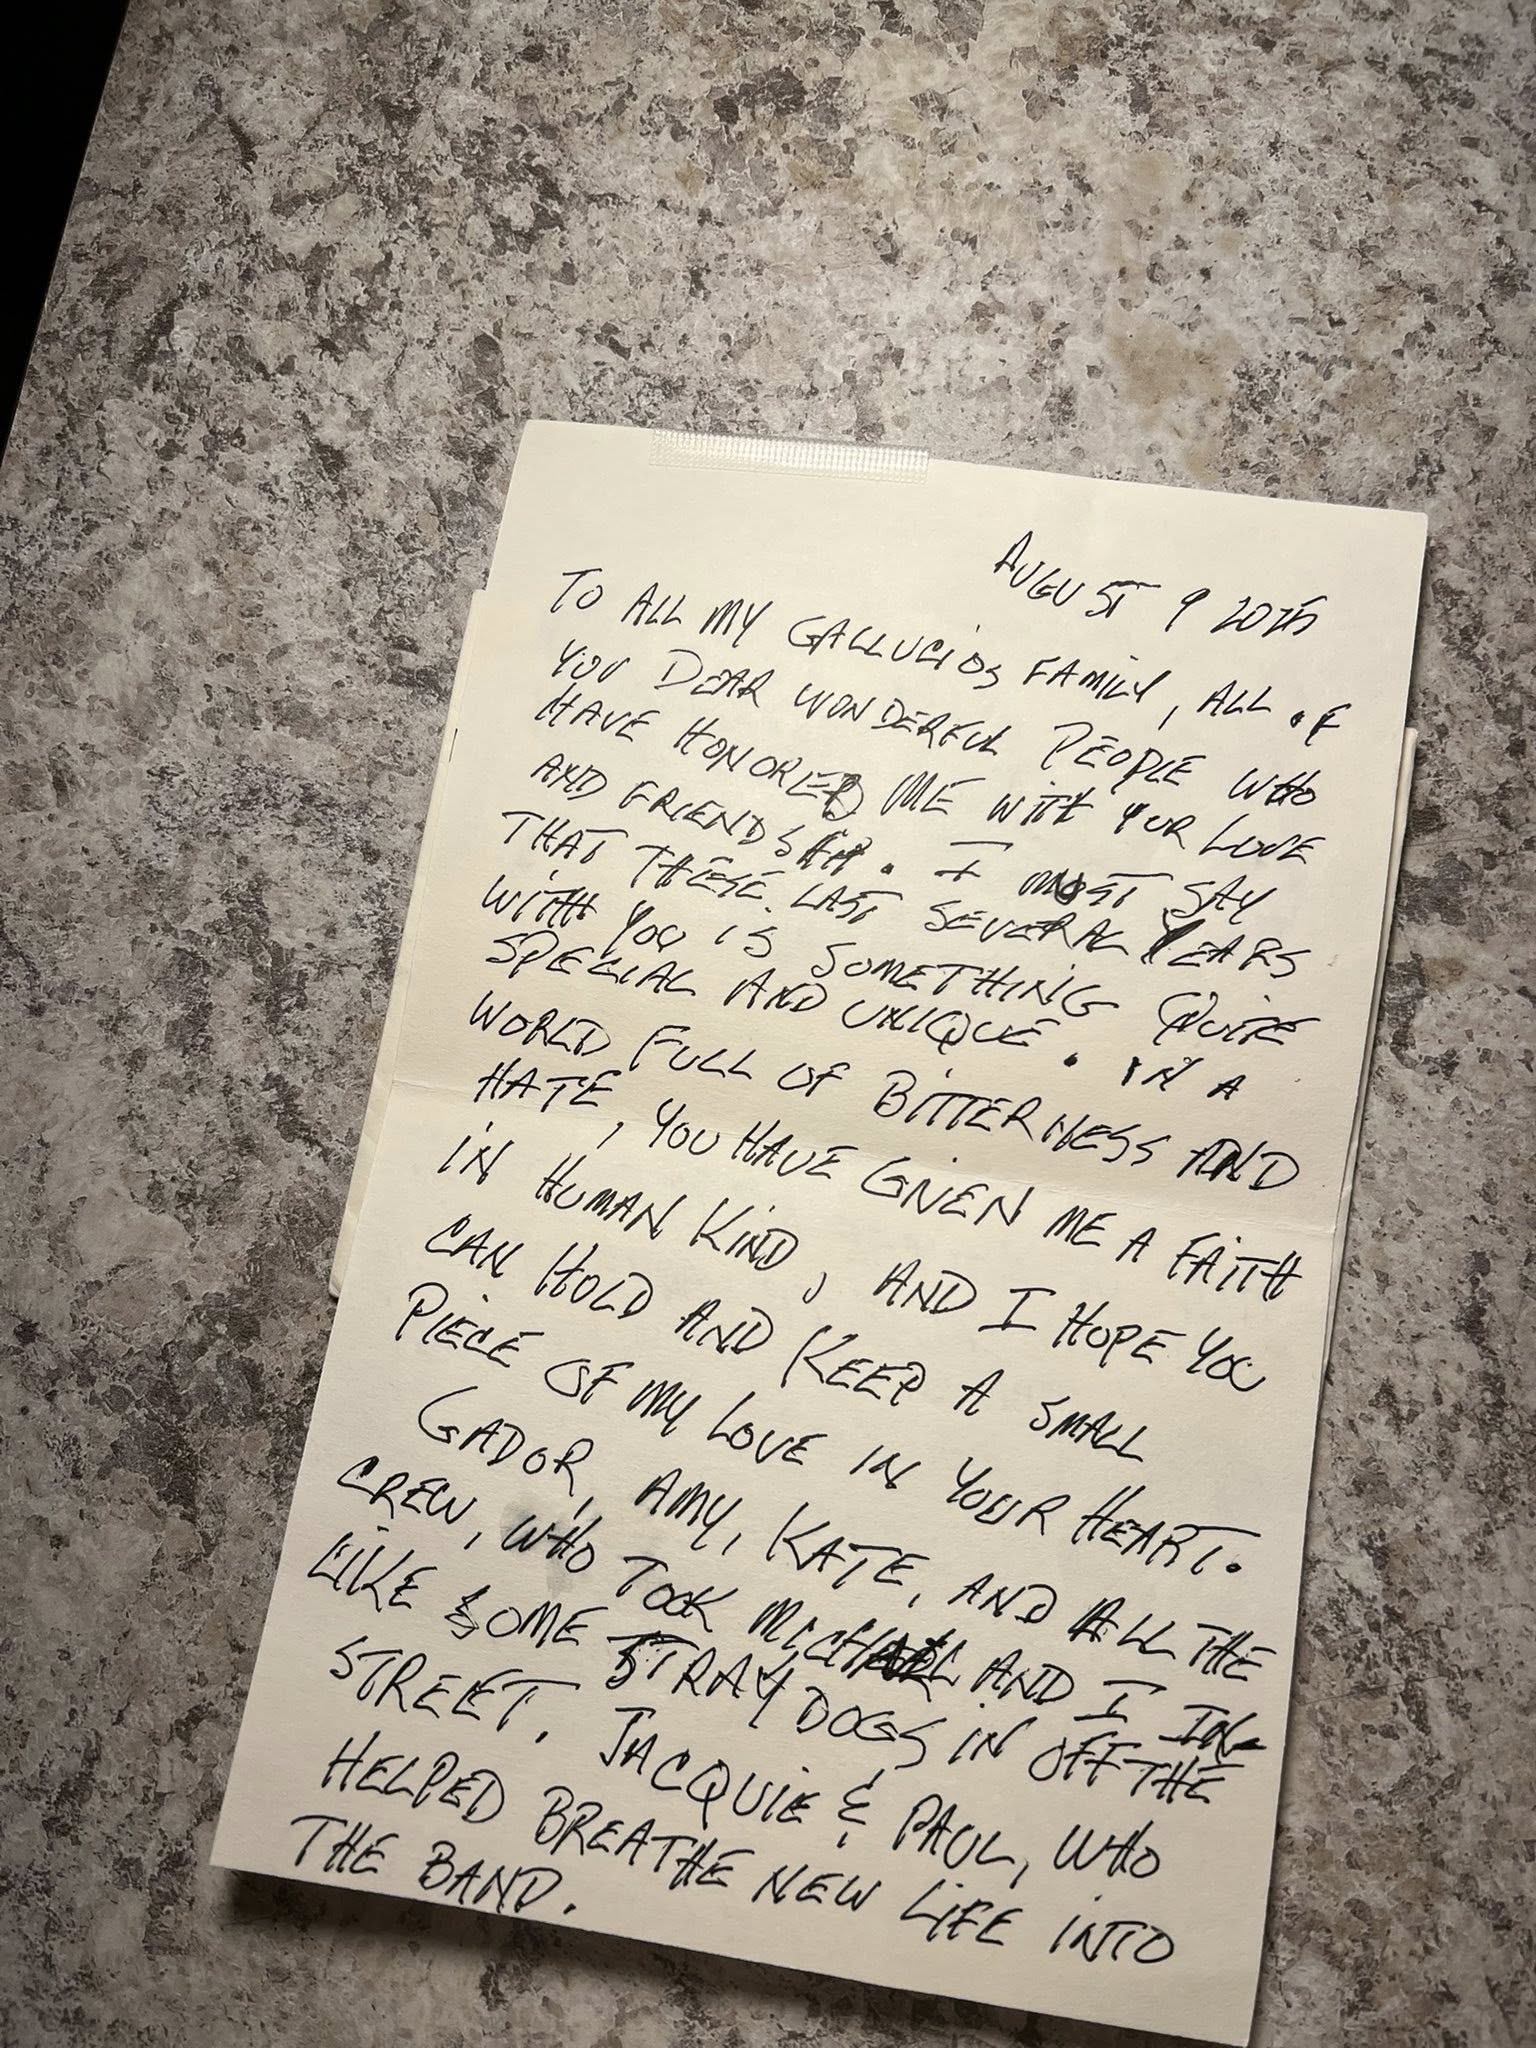 AUGUST 9 2025
TO ALL MY GALLUCIOS FAMILY, ALL OF
YOU DEAR WONDERFUL PEOPLE WHO
HAVE HONORED ME WITH YOUR LOVE
AND FRIENDSHIP. I MUST SAY
THAT THESE LAST SEVERAL YEARS
WITH YOU IS SOMETHING QUITE
SPECIAL AND UNIQUE. IN A
WORLD FULL OF BITTERNESS AND
HATE, YOU HAVE GIVEN ME A FAITH
IN HUMAN KIND, AND I HOPE YOU
CAN HOLD AND KEEP A SMALL
PIECE OF MY LOVE IN YOUR HEART.
GADOR, AMY, KATE, AND ALL THE
CREW, WHO TOOK MICHAEL AND I IN
LIKE SOME STRAY DOGS IN OFF THE
STREET. JACQUIE & PAUL, WHO
HELPED BREATHE NEW LIFE INTO
THE BAND.